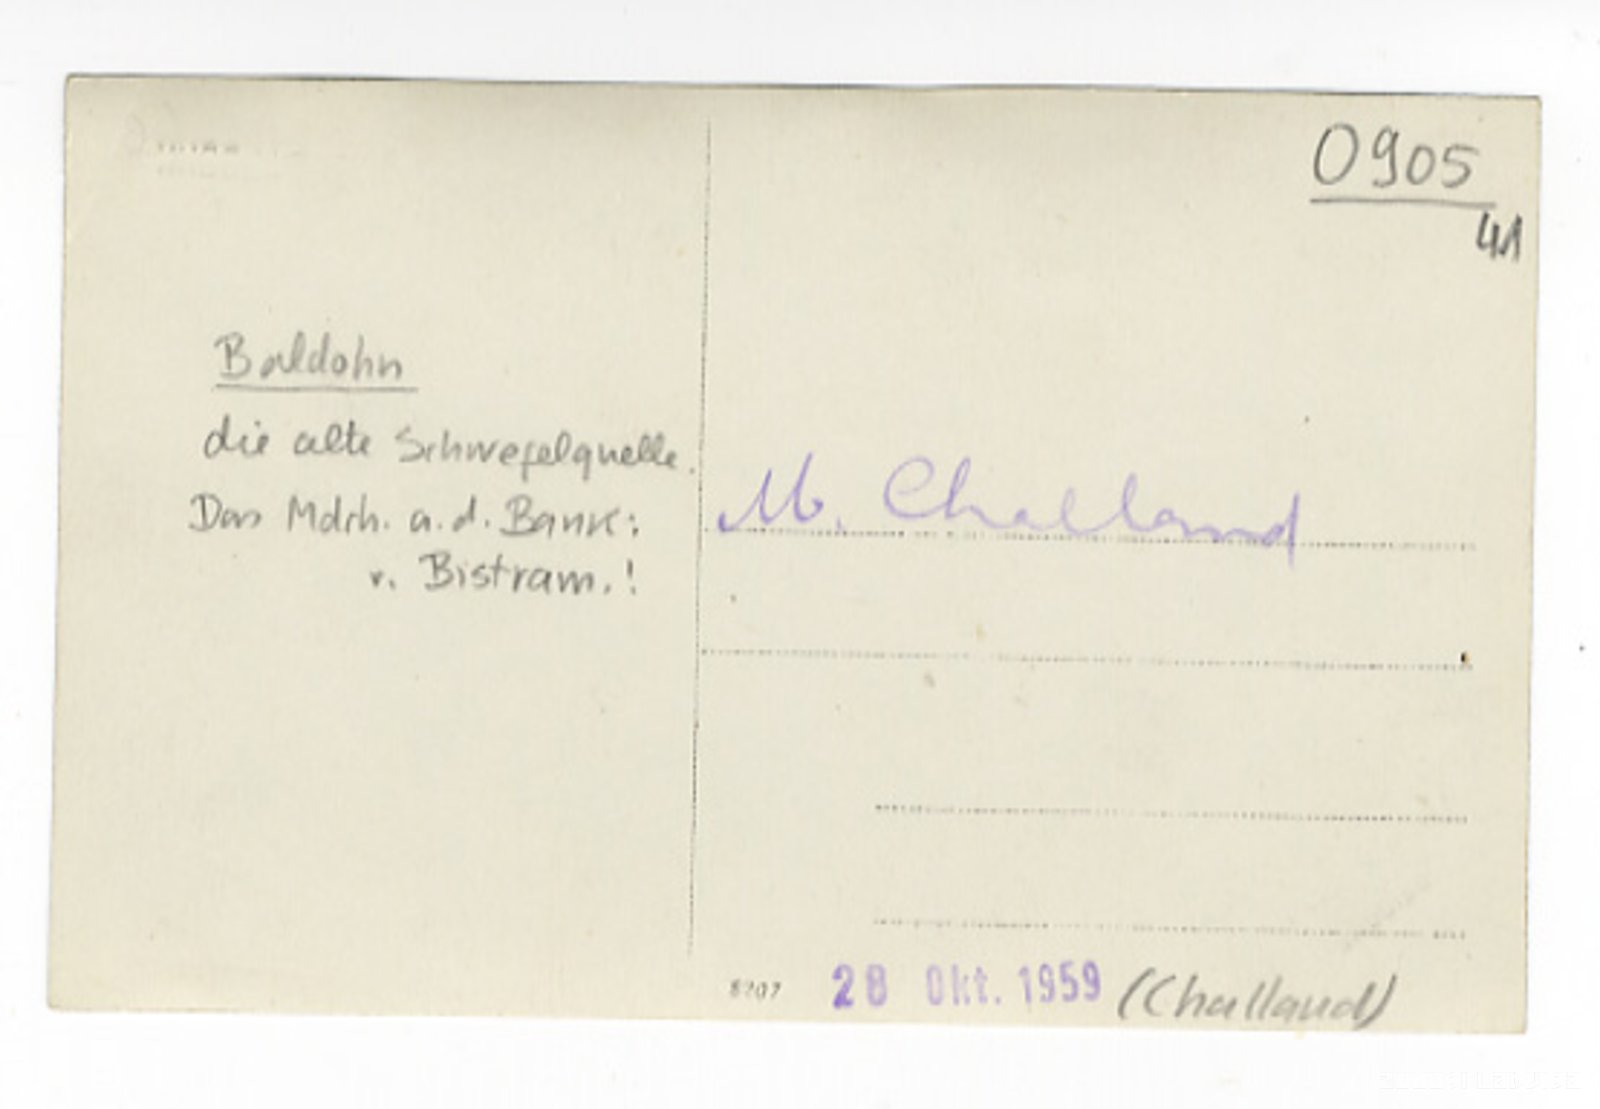 0905
41
Baldohn
die alte Schwefelquelle.
Das Mdch. a.d. Bank:
v. Bistram.!
M. Challand
8207
28 Okt. 1959 (Challand)